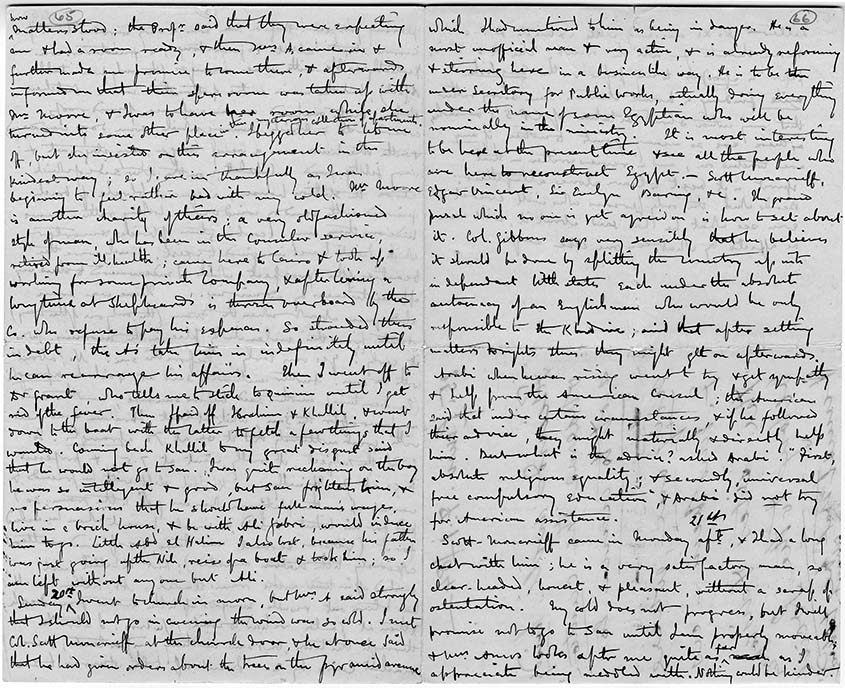 65
how
matters stood; the Profr. said that they were expecting
me & had a room ready, & then Mrs A. came in &
further made me promise to come there, & afterwards
informed me that their spare room was taken up with
Mr Moore, & I was to have her room, while she
turned into some other place. I begged her to let me
off, but she insisted on this arrangement in the
kindest way; so I am in thankfully as I was
beginning to feel rather bad with my cold. Mr Moore
is another charity of theirs, a very old fashioned
style of man, who has been in the Consular service;
retired from ill health; came here to Cairo & took up
working for some private Company, & after living a
long time at Shepheards is thrown overboard by the
Co. who refuse to pay his expenses. So stranded thus
in debt, the A's take him in indefinitely until
he can rearrange his affairs. Then I went off to
Dr Grant, who tells me to stick to quinine until I get
rid of the fever. Then I paid off Ibrahim & Khallil, & went
down to the boat with the latter to fetch a few things that I
wanted. Coming back Khallil to my great disgust said
that he would not go to San. I was quite reckoning on the boy
he was so intelligent & good, but San frightens him, &
no persuasion that he should have full man's wages,
live in a brick house, & be with Ali Jabri, would induce
him to go. Little Abd el Halim I also lost, because his father
was just going up the Nile, reis of a boat & took him; so I
am left without any one but Ali.
Sunday 20th I went to church in morn, but Mrs. A said strongly
that I should not go in evening the wind was so cold. I met
Col. Scott Moncrieff at the church door, & he at once said
that he had given orders about the trees in the pyramid avenue
66
which I had mentioned to him as being in danger. He is a
most unofficial man & very active, & is already reforming
& stirring here in a businesslike way. He is to be the
under Secretary for Public Works, actually doing everything
under the name of some Egyptian who will be
nominally in the ministry. It is most interesting
to be here at the present time & see all the people who
are here to reconstruct Egypt, – Scott Moncrieff,
Edgar Vincent, Sir Evelyn Baring, &c. The grand
puzzle which no one is yet agreed on is how to set about
it. Col. Gibbons says very sensibly that he believes
it should be done by splitting the country up into
independant little states each under the absolute
autocracy of an Englishman who would be only
responsible to the Khedive; and that after setting
matters to rights thus they might get on afterwards.
Arabi when he was rising went to try & get sympathy
& help from the American Consul; the American
said that under certain circumstances, & if he followed
their advice, they might materially & directly help
him. But what is the advice? asked Arabi. "First,
absolute religious equality; & secondly, universal
free compulsory education", & Arabi did not try
for American assistance.
21st
Scott-Moncrieff came in Monday aft. & I had a long
chat with him; he is a very satisfactory man, so
clear-headed, honest, & pleasant, without a scrap of
ostentation. My cold does not progress, but I will
promise not to go to San until I am properly moveable,
& Mrs Amos looks after me quite as far as I
appreciate being meddled with. Nothing could be kinder.